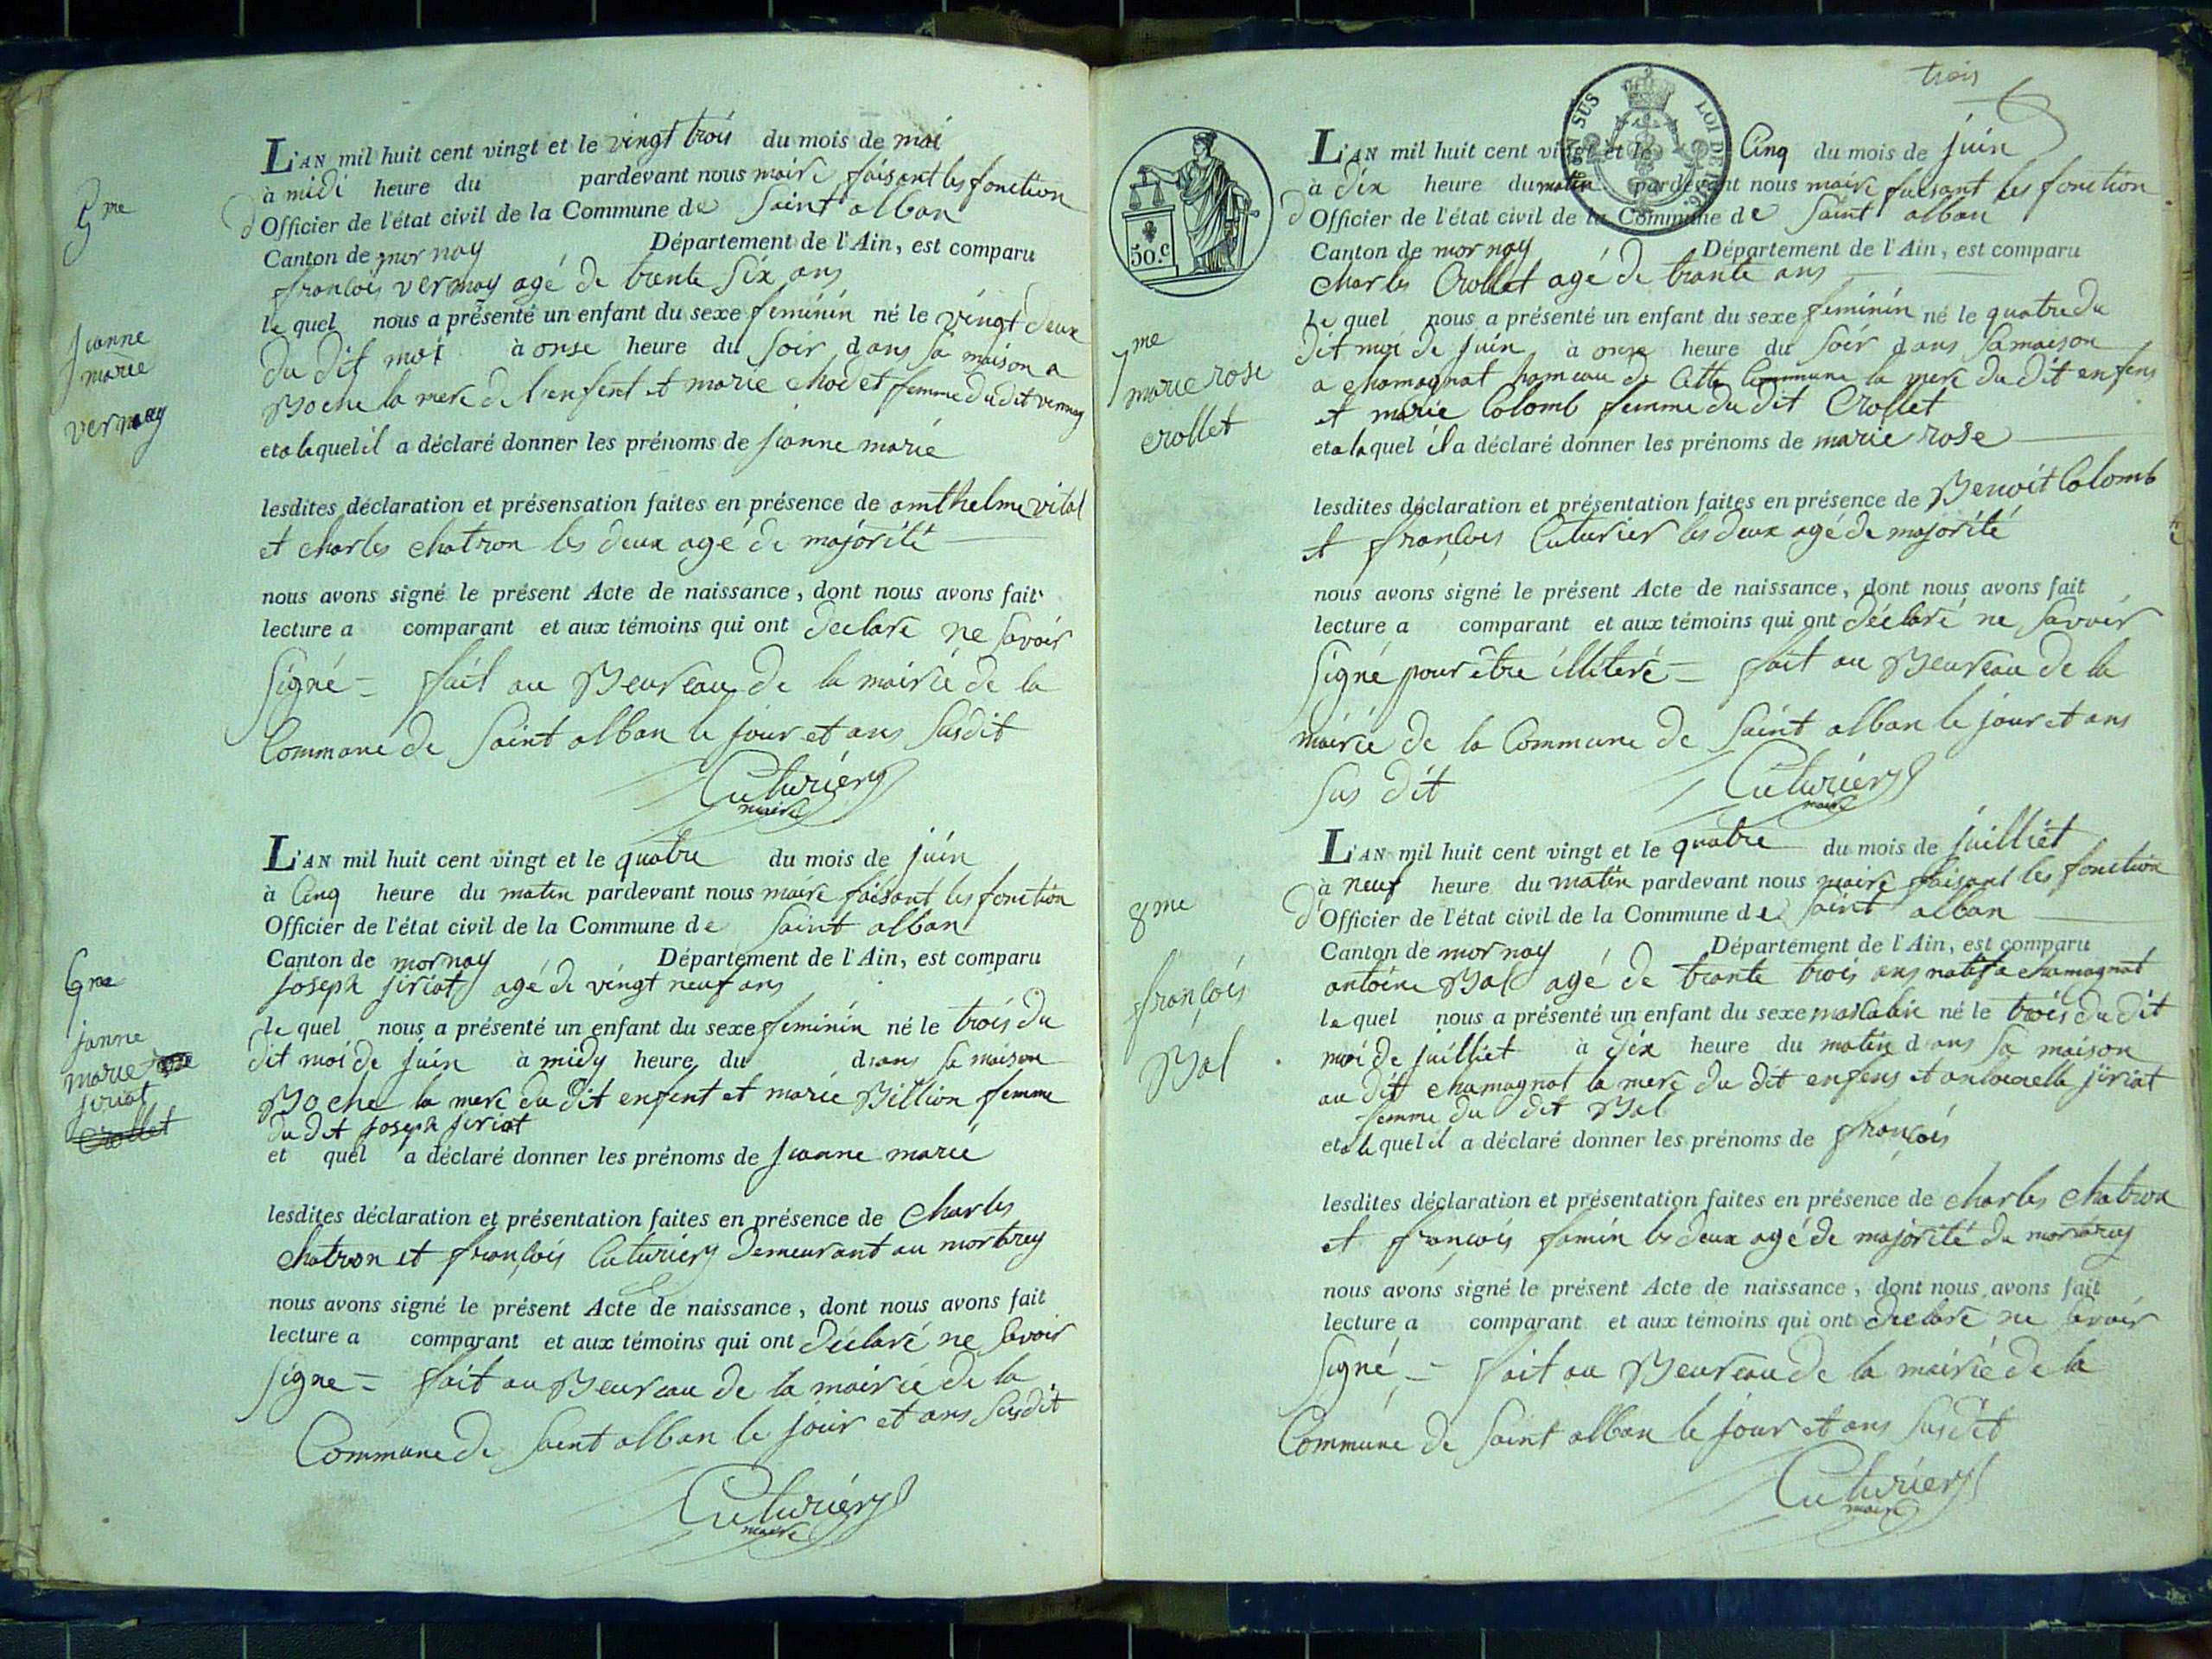 5me
Jeanne
marie
vermay
L'AN mil huit cent vingt et le vingt trois du mois de mai
à midi heure du pardevant nous maire faisant les fonction
d Officier de l'état civil de la Commune de Saint alban
Canton de mornay Département de l'Ain, est comparu
françois vermay agé de trente Six ans
le quel nous a présenté un enfant du sexe feminin né le vingt deux
du dit moi à onse heure du Soir dans Sa maison a
Boche la mere de l'enfent et marie chodet femme du dit vermay
et a laquel il a déclaré donner les prénoms de Jeanne marie
lesdites déclaration et présensation faites en présence de amthelme vital
et charles chatron les deux agé de majorité
nous avons signé le présent Acte de naissance, dont nous avons fait
lecture a comparant et aux témoins qui ont declaré ne Savoir
Signé = fait au Beureau de la mairie de la
Commune de Saint alban le jour et ans Susdit
Cuturier
maire
6me
janne
marie
jiriat
Crollet
L'AN mil huit cent vingt et le quatre du mois de juin
à Cinq heure du matin pardevant nous maire faisant les fonction
Officier de l'état civil de la Commune de Saint alban
Canton de mornay Département de l'Ain, est comparu
Joseph jiriat agé de vingt neuf ans
le quel nous a présenté un enfant du sexe feminin né le trois du
dit moi de juin à midy heure du dans Sa maison
Boche la mere du dit enfent et marie Billion femme
du dit Joseph Jiriat
et quel a déclaré donner les prénoms de Jeanne marie
lesdites déclaration et présentation faites en présence de Charles
chatron et françois Cuturier Demeurant au mortrey
nous avons signé le présent Acte de naissance, dont nous avons fait
lecture a comparant et aux témoins qui ont déclaré ne Savoir
Signe = fait au Beureau de la mairie de la
Commune de Saint alban le jour et ans Susdit
Cuturier
maire
trois
50.c
LOI DE
7me
marie rose
crollet
L'AN mil huit cent vingt et le Cinq du mois de juin
à dix heure du matin pardevant nous maire faisant les fonction
d Officier de l'état civil de la Commune de Saint alban
Canton de mornay Département de l'Ain, est comparu
Charles Crollet agé de trante ans
le quel nous a présenté un enfant du sexe feminin né le quatre du
dit moi de juin à onze heure du Soir dans Sa maison
a chamagnat hameau de Cette Commune la mere du dit enfens
et marie Colomb femme du dit Crollet
et a laquel il a déclaré donner les prénoms de marie rose
lesdites déclaration et présentation faites en présence de Benoit Colomb
et françois Cuturier les deux agé de majorité
nous avons signé le présent Acte de naissance, dont nous avons fait
lecture a comparant et aux témoins qui ont déclaré ne Savoir
Signé pour être illiteré = fait au Beureau de la
mairie de la Commune de Saint alban le jour et ans
Sus dit
Cuturier
maire
8me
françois
Bal
L'AN mil huit cent vingt et le quatre du mois de juilliet
à neuf heure du matin pardevant nous maire faisant les fonction
d'Officier de l'état civil de la Commune de Saint alban
Canton de mornay Département de l'Ain, est comparu
antoine Bal agé de trante trois ans natif a chamagnat
le quel nous a présenté un enfant du sexe masculin né le trois du dit
moi de juilliet à dix heure du matin dans Sa maison
au dit chamagnat la mere du dit enfens et antoinette jiriat
femme du dit Bal
et a le quel il a déclaré donner les prénoms de françois
lesdites déclaration et présentation faites en présence de charles chatron
et françois famin les deux agé de majorité du mortarey
nous avons signé le présent Acte de naissance, dont nous avons fait
lecture a comparant et aux témoins qui ont declaré ne Savoir
Signé = fait au Beureau de la mairie de la
Commune de Saint alban le jour et ans Susdit
Cuturier
maire